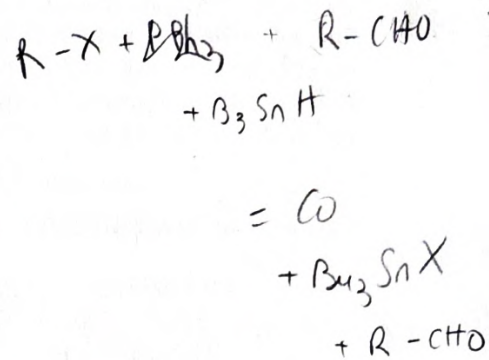 R-X + PPh3 + R-CHO
+ B3SnH
= CO
+ Bu3SnX
+ R-CHO